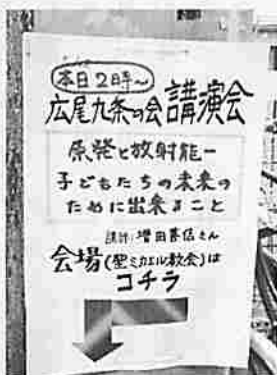 本日2時〜
広尾九条の会講演会
原発と放射能ー
子どもたちの未来の
ために出来ること
講師:増田善信さん
会場(聖ミカエル教会)は
コチラ